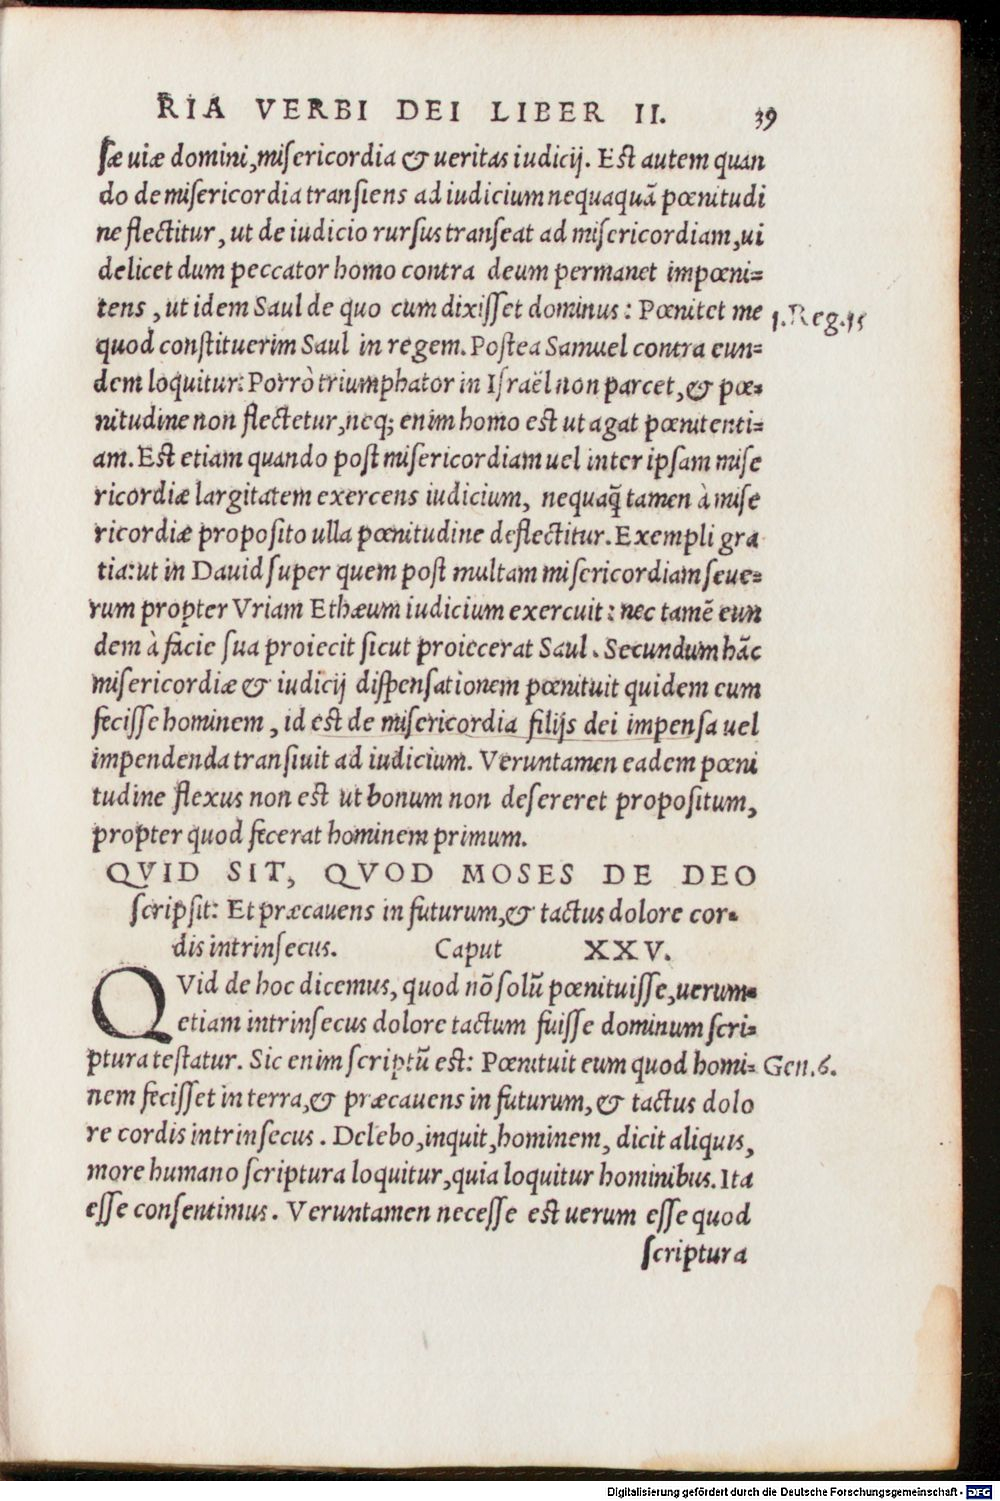 RIA VERBI DEI LIBER II. 39
sæ uiæ domini, misericordia & ueritas iudicij. Est autem quan
do de misericordia transiens ad iudicium nequaquã pœnitudi
ne flectitur, ut de iudicio rursus transeat ad misericordiam, ui
delicet dum peccator homo contra deum permanet impœni=
tens, ut idem Saul de quo cum dixisset dominus: Pœnitet me 1. Reg. 15
quod constituerim Saul in regem. Postea Samuel contra eun=
dem loquitur: Porrò triumphator in Israël non parcet, & pœ=
nitudine non flectetur, neq; enim homo est ut agat pœnitenti=
am. Est etiam quando post misericordiam uel inter ipsam mise
ricordiæ largitatem exercens iudicium, nequaq̃ tamen à mise
ricordiæ proposito ulla pœnitudine deflectitur. Exempli gra
tia: ut in Dauid super quem post multam misericordiam seue=
rum propter Vriam Ethæum iudicium exercuit: nec tamẽ eun
dem à facie sua proiecit sicut proiecerat Saul. Secundum hãc
misericordiæ & iudicij dispensationem pœnituit quidem eum
fecisse hominem, id est de misericordia filijs dei impensa uel
impendenda transiuit ad iudicium. Veruntamen eadem pœni
tudine flexus non est ut bonum non desereret propositum,
propter quod fecerat hominem primum.
QVID SIT, QVOD MOSES DE DEO
scripsit: Et præcauens in futurum, & tactus dolore cor=
dis intrinsecus. Caput XXV.
QVid de hoc dicemus, quod nõ solũ pœnituisse, uerum=
etiam intrinsecus dolore tactum fuisse dominum scri=
ptura testatur. Sic enim scriptũ est: Pœnituit eum quod homi= Gen. 6.
nem fecisset in terra, & præcauens in futurum, & tactus dolo
re cordis intrinsecus. Delebo, inquit, hominem, dicit aliquis,
more humano scriptura loquitur, quia loquitur hominibus. Ita
esse consentimus. Veruntamen necesse est uerum esse quod
scriptura
Digitalisierung gefördert durch die Deutsche Forschungsgemeinschaft - DFG